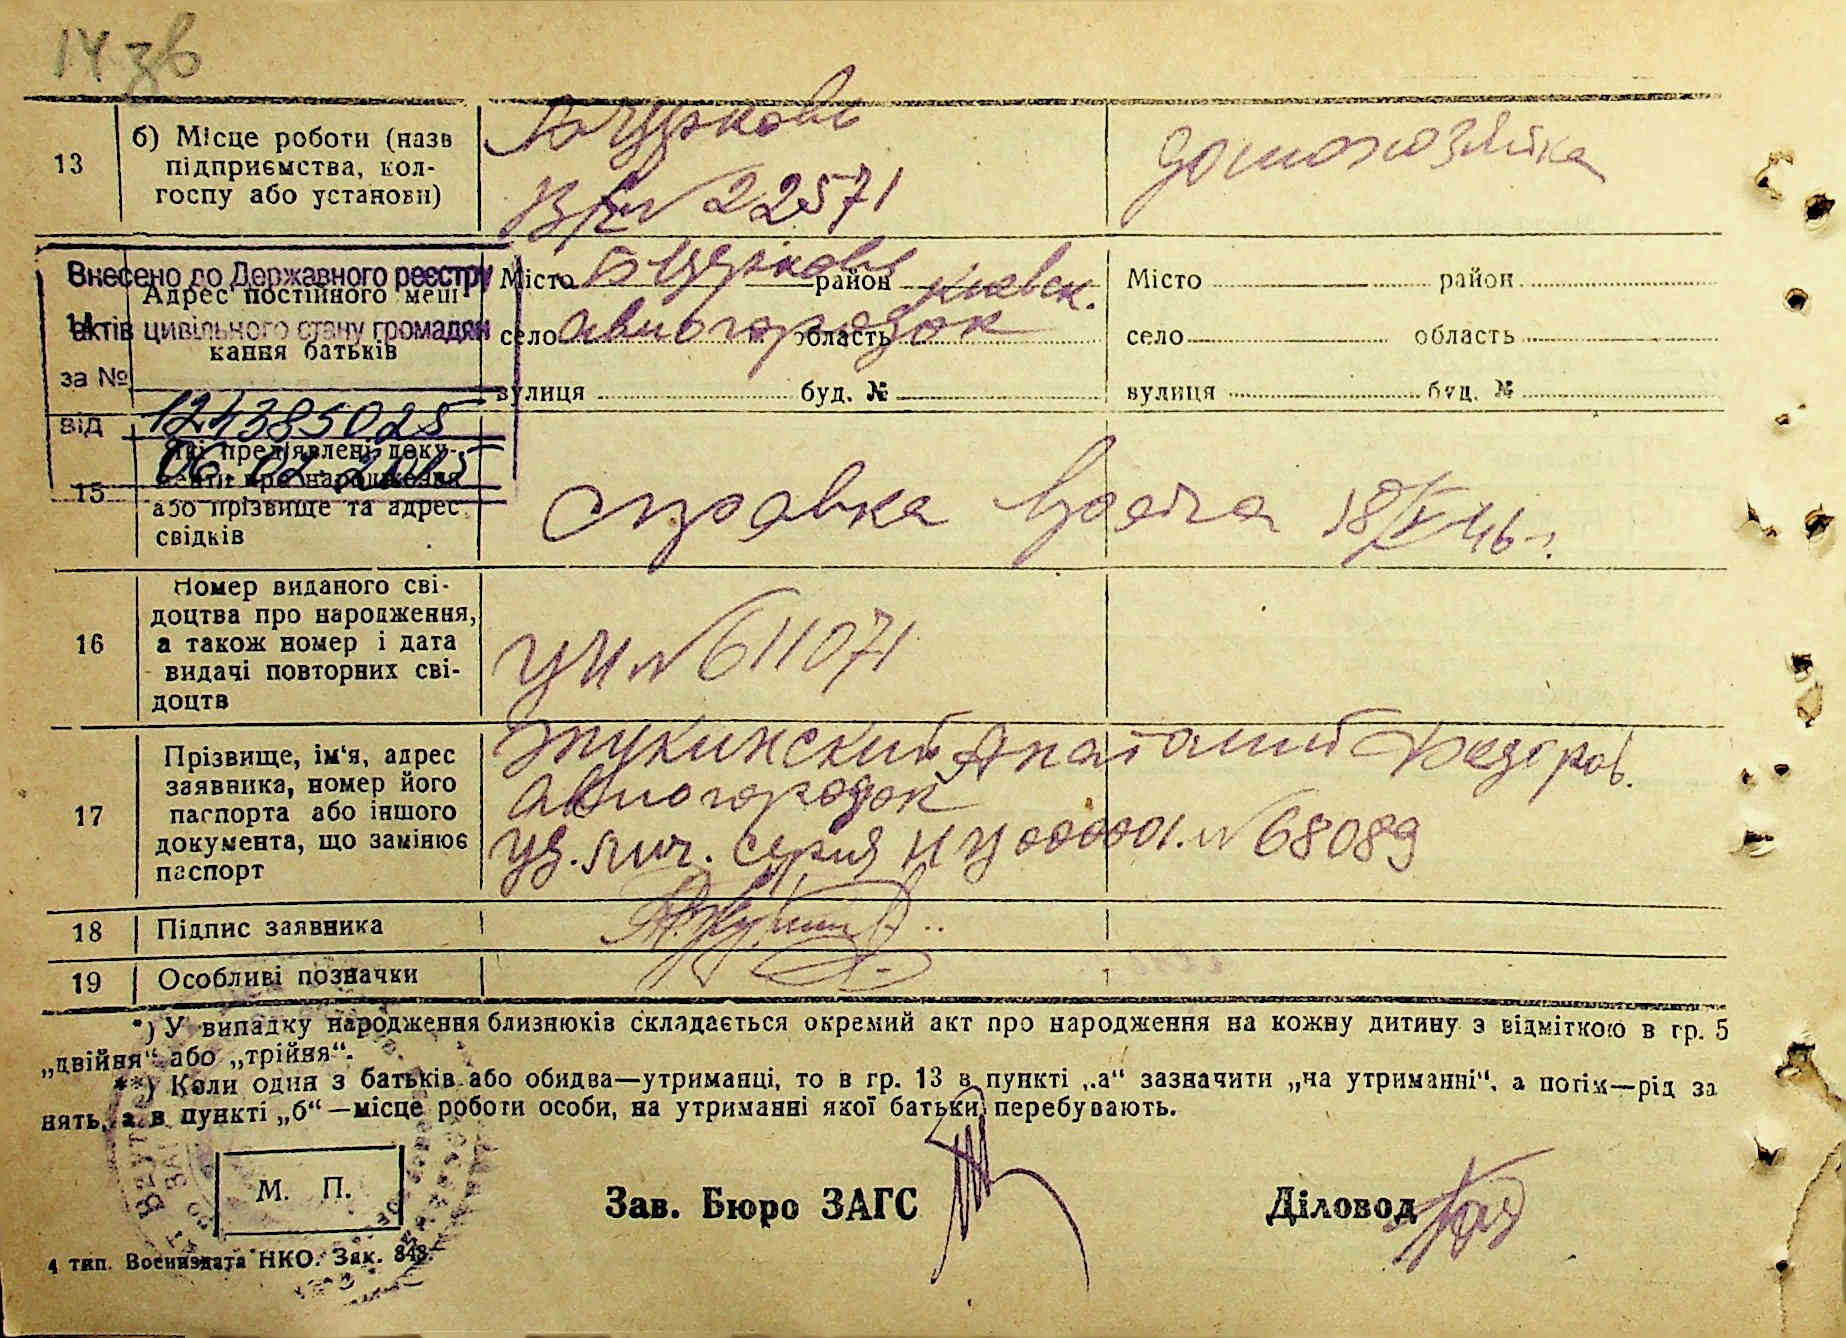 14 зв
13
б) Місце роботи (назв
підприємства, кол-
госпу або установи)
Б Церковь
В/ч № 22571
домохозяйка
Внесено до Державного реєстру
актів цивільного стану громадян
за № 12438502 5
від 06.02.2015
14
Адрес постійного меш
кання батьків
Місто Б Церковь район Киевск.
село Авиогородок область
вулиця буд. №
Місто район
село область
вулиця буд. №
15
Які пред'явлені доку-
менти про народження
або прізвище та адрес
свідків
Справка врача 18/V 46 г.
16
Номер виданого сві-
доцтва про народження,
а також номер і дата
видачі повторних сві-
доцтв
УН № 611071
17
Прізвище, ім'я, адрес
заявника, номер його
паспорта або іншого
документа, що замінює
паспорт
Жукинский Анатолий Федоров.
Авиогородок
уд. лич. серия НУ 000001. № 68089
18
Підпис заявника
19
Особливі позначки
*) У випадку народження близнюків складається окремий акт про народження на кожну дитину з відміткою в гр. 5
„двійня“ або „трійня“.
**) Коли один з батьків або обидва—утриманці, то в гр. 13 в пункті „а“ зазначити „на утриманні“, а потім—рід за
нять, а в пункті „б“—місце роботи особи, на утриманні якої батьки перебувають.
М. П.
Зав. Бюро ЗАГС
Діловод
4 тип. Воениздата НКО. Зак. 848.